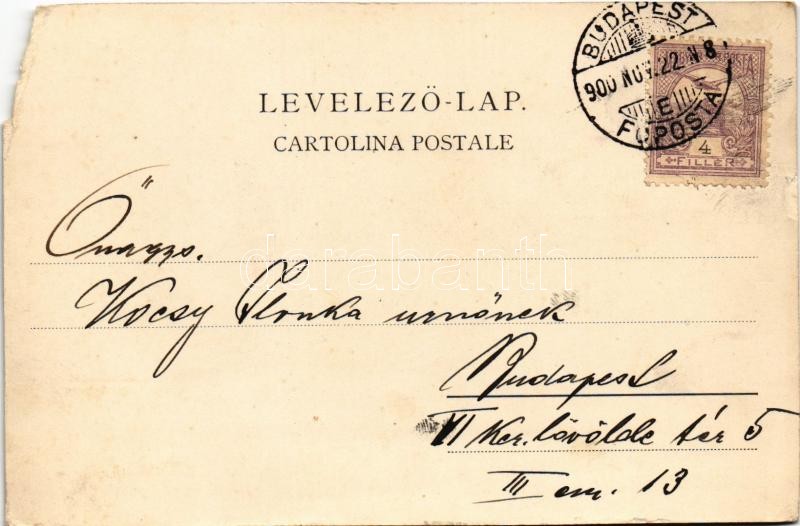 BUDAPEST
900 NOV. 22 N 8
E
FŐPOSTA
4
FILLÉR
LEVELEZŐ-LAP.
CARTOLINA POSTALE
Őnagys.
Kocsy Ilonka urnőnek
Budapest
Ker. lövölde tér 5
III em. 13
darabanth